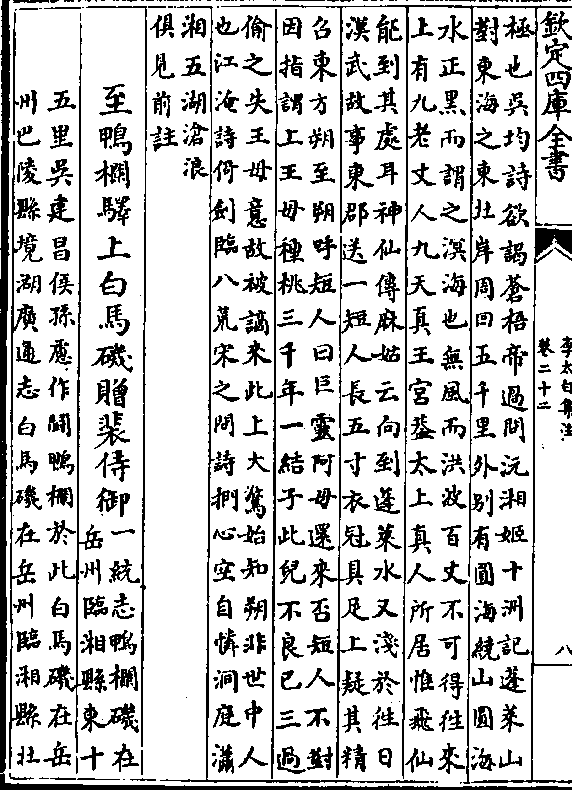 欽定四庫全書
李太白集注
卷二十二
八
極也吳均詩欲謁蒼梧帝過問沅湘姬十洲記蓬萊山
對東海之東北岸周回五千里外别有圓海繞山圓海
水正黑而謂之溟海也無風而洪波百丈不可得往來
上有九老丈人九天真王宮葢太上真人所居惟飛仙
能到其處耳神仙傳麻姑云向到蓬萊水又淺於往日
漢武故事東郡送一短人長五寸衣冠具足上疑其精
召東方朔至朔呼短人曰巨靈阿母還來否短人不對
因指謂上王母種桃三千年一結子此兒不良已三過
偷之失王母意故被謫來此上大驚始知朔非世中人
也江淹詩倚劍臨八荒宋之問詩捫心空自憐洞庭瀟
湘五湖滄浪
俱見前註
至鴨欄驛上白馬磯贈裴侍御
一統志鴨欄磯在
岳州臨湘縣東十
五里吳建昌侯孫慮作鬭鴨欄於此白馬磯在岳
州巴陵縣境湖廣通志白馬磯在岳州臨湘縣北